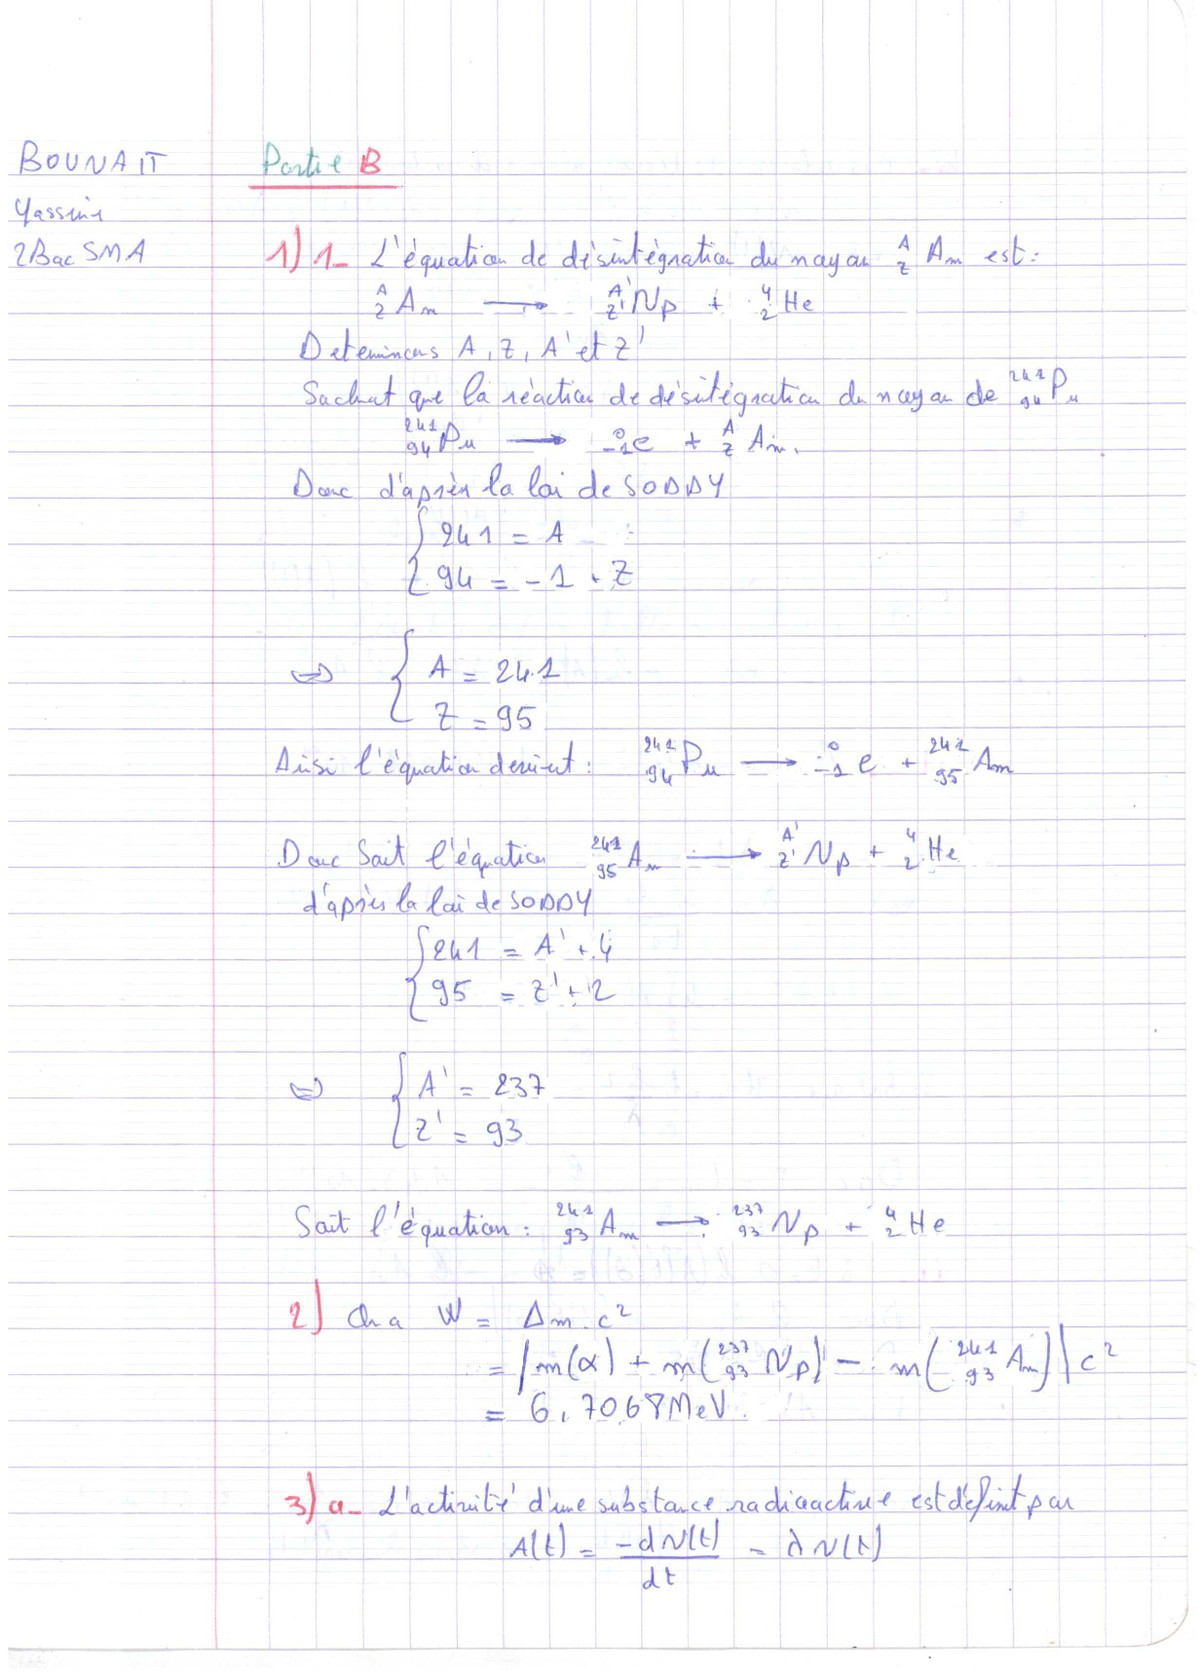 BOUNAIT
Yassine
2Bac SMA
Partie B
1) 1_ L'équation de désintégration du noyau ᴬ_Z Am est :
ᴬ_Z Am → ᴬ'_Z' Np + ⁴₂He
Determinons A, Z, A' et Z'
Sachat que la réaction de désitégration du noyau de ²⁴¹₉₄Pu
²⁴¹₉₄Pu → ⁰₋₁e + ᴬ_Z Am.
Donc d'après la loi de SODDY
{ 241 = A
{ 94 = -1 + Z
⇒ { A = 241
{ Z = 95
Aisi l'équation devient : ²⁴¹₉₄Pu → ⁰₋₁e + ²⁴¹₉₅Am
Donc Soit l'équation ²⁴¹₉₅Am → ᴬ'_Z' Np + ⁴₂He
d'après la loi de SODDY
{ 241 = A' + 4
{ 95 = Z' + 2
⇒ { A' = 237
{ Z' = 93
Soit l'équation : ²⁴¹₉₃Am → ²³⁷₉₃Np + ⁴₂He
2) On a W = Δm.c²
= |m(α) + m(²³⁷₉₃Np) - m(²⁴¹₉₃Am)| c²
= 6,7068 MeV.
3) a_ L'activité d'une substance radioactive est définit par
A(t) = -dN(t)/dt = λN(t)